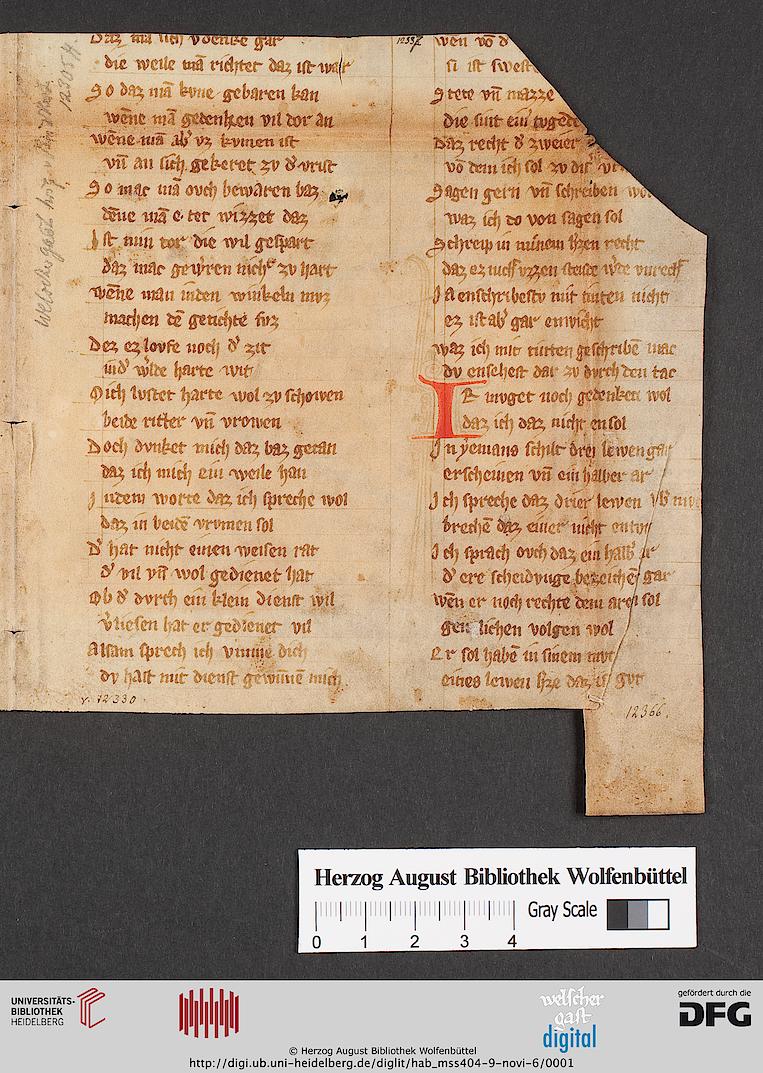 Daz mā sich vdenke gar
die weile mā richtet daz ist war
So daz mā kvne gebaren kan
wēne mā gedenken vil dor an
wēne mā ab' vz kvmen ist
vn̄ an sich gekeret zv d' vrist
So mac mā ovch bewaren baz
dēne mā e ter wizzet daz
Ist nun tor die wil gespart
daz mac gew'ren nicht zv hart
wēne man inden winkeln mvz
machen dē gerichte fvz
Dez ez lovfe noch d' zit
w'lde harte wit
Dich lvstet harte wol zv schowen
beide ritter vn̄ vrowen
Doch dvnket mich daz baz getan
daz ich mich ein weile han
In dem worte daz ich spreche wol
daz in beidē vrvmen sol
D' hat nicht einen weisen rat
d' vil vn̄ wol gedienet hat
Ob d' dvrch ein klein dienst wil
v'liesen hat er gedienet vil
Alsam sprech ich vmme dich
dv hast mit dienst gewinnē mich
v. 12330
wen vō d
si ist swest
Stete vn̄ mazze
die sint ein tvgede
Daz recht d' zweier
vō dem ich sol zv dis'
Sagen gern vn̄ schreiben wol
waz ich do von sagen sol
Schreip in minem h'zen recht
Ia enschribestv mit tinten nicht
ez ist ab' gar enwicht
waz ich mit tinten geschribē mac
dv ensehest dar zv dvrch den tac
IR mvget noch gedenken wol
daz ich daz nicht ensol
In yemans schilt drei lewen gar
erscheinen vn̄ ein halber ar
Ich spreche daz drier lewen
brechē daz einer nicht
Ich sprach ovch daz ein halb' ar
d' ere scheidvnge bezeichēt gar
wen er noch rechte dem aren sol
lichen volgen wol
Er sol habē in sinem mvt
eines lewen h'ze daz ist gvt
12366.
12305 ff.
Herzog August Bibliothek Wolfenbüttel
Gray Scale
0 1 2 3 4
UNIVERSITÄTS-
BIBLIOTHEK
HEIDELBERG
welscher
gast
digital
gefördert durch die
DFG
© Herzog August Bibliothek Wolfenbüttel
http://digi.ub.uni-heidelberg.de/diglit/hab_mss404-9-novi-6/0001